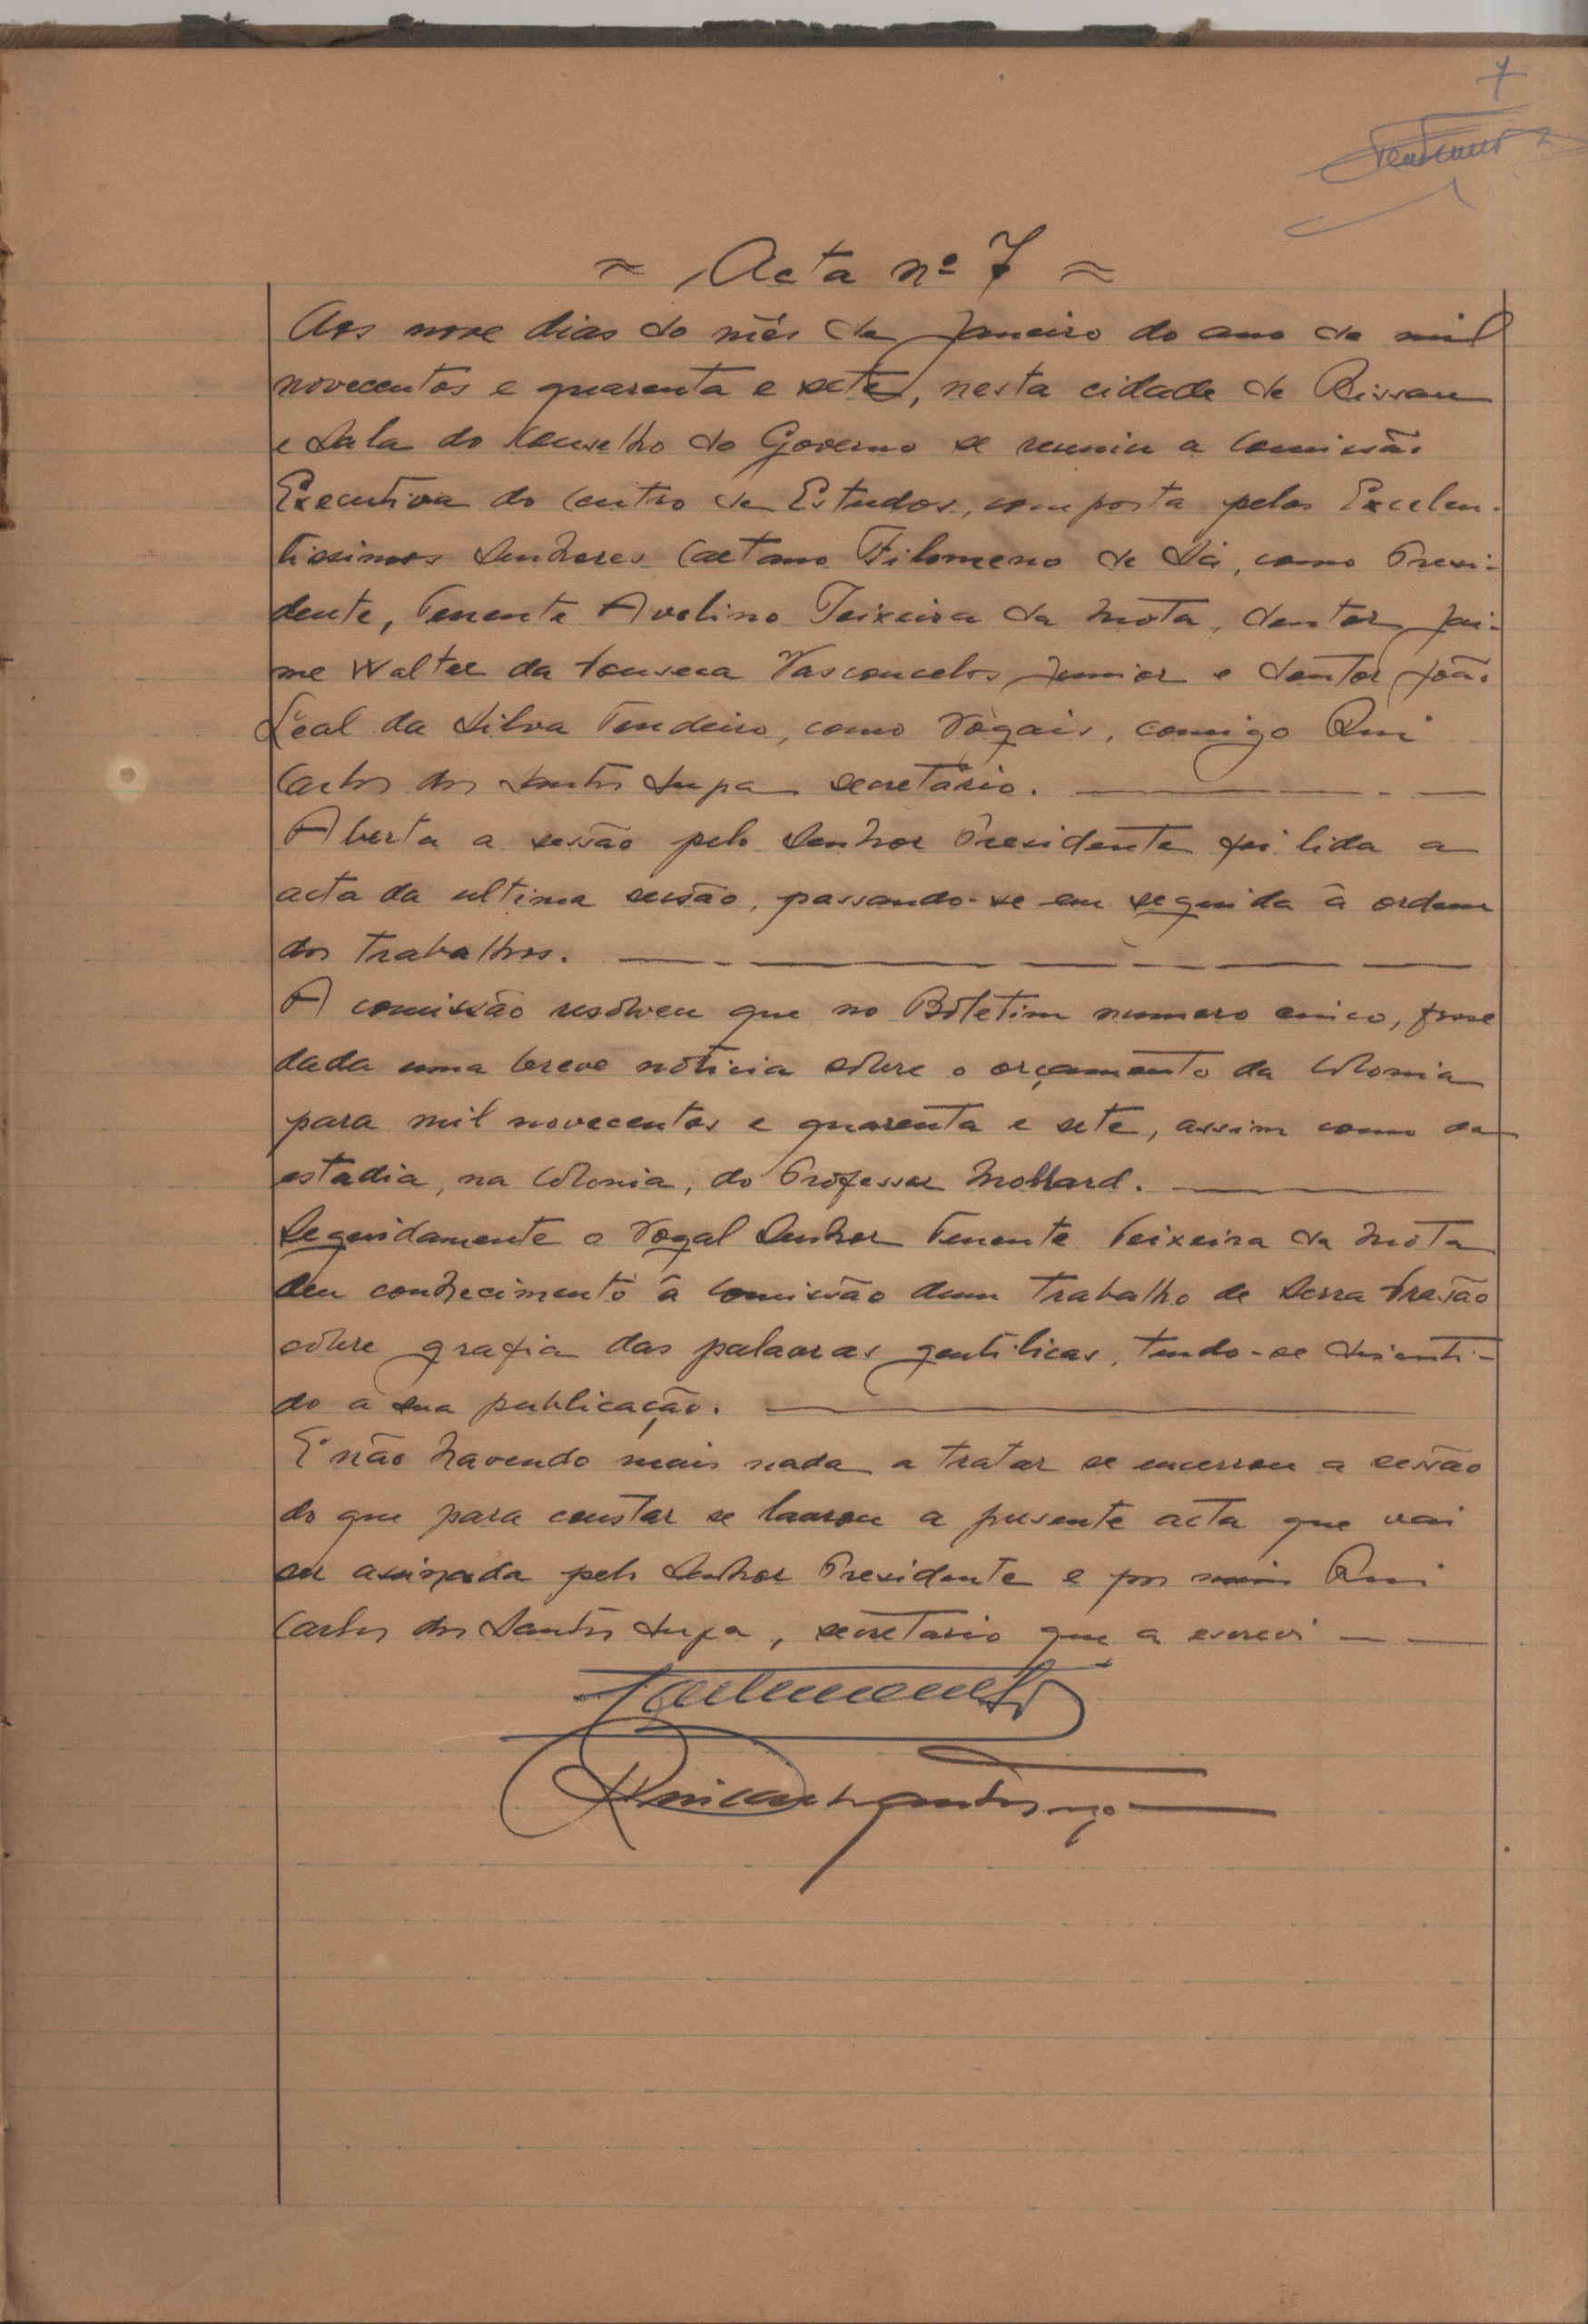 7
~ Acta nº 7 ~
Aos nove dias do mês de Janeiro do ano de mil
novecentos e quarenta e sete, nesta cidade de Bissau
e Sala do Conselho do Governo se reuniu a Comissão
Executiva do Centro de Estudos, composta pelos Excelen-
tissimos Senhores Caetano Filomeno de Sá, como Presi-
dente, Tenente Avelino Teixeira da Mota, doutor Jai-
me Walter da Fonseca Vasconcelos Junior e doutor João
Leal da Silva Tendeiro, como Vogais, comigo Rui
Carlos dos Santos Lupa secretário.
Aberta a sessão pelo Senhor Presidente foi lida a
acta da ultima sessão, passando-se em seguida á ordem
dos trabalhos.
A comissão resolveu que no Boletim numero cinco, fosse
dada uma breve noticia sôbre o orçamento da Colonia
para mil novecentos e quarenta e sete, assim como da
estadia, na Colonia, do Professor Mollard.
Seguidamente o Vogal Senhor Tenente Teixeira da Mota
deu conhecimento á Comissão dum trabalho de Serra Frasão
sôbre grafia das palavras gentilicas, tendo-se
do a sua publicação.
E não havendo mais nada a tratar se encerrou a sessão
do que para constar se lavrou a presente acta que vai
ser assinada pelo Senhor Presidente e por mim Rui
Carlos dos Santos Lupa, secretario que a escrevi